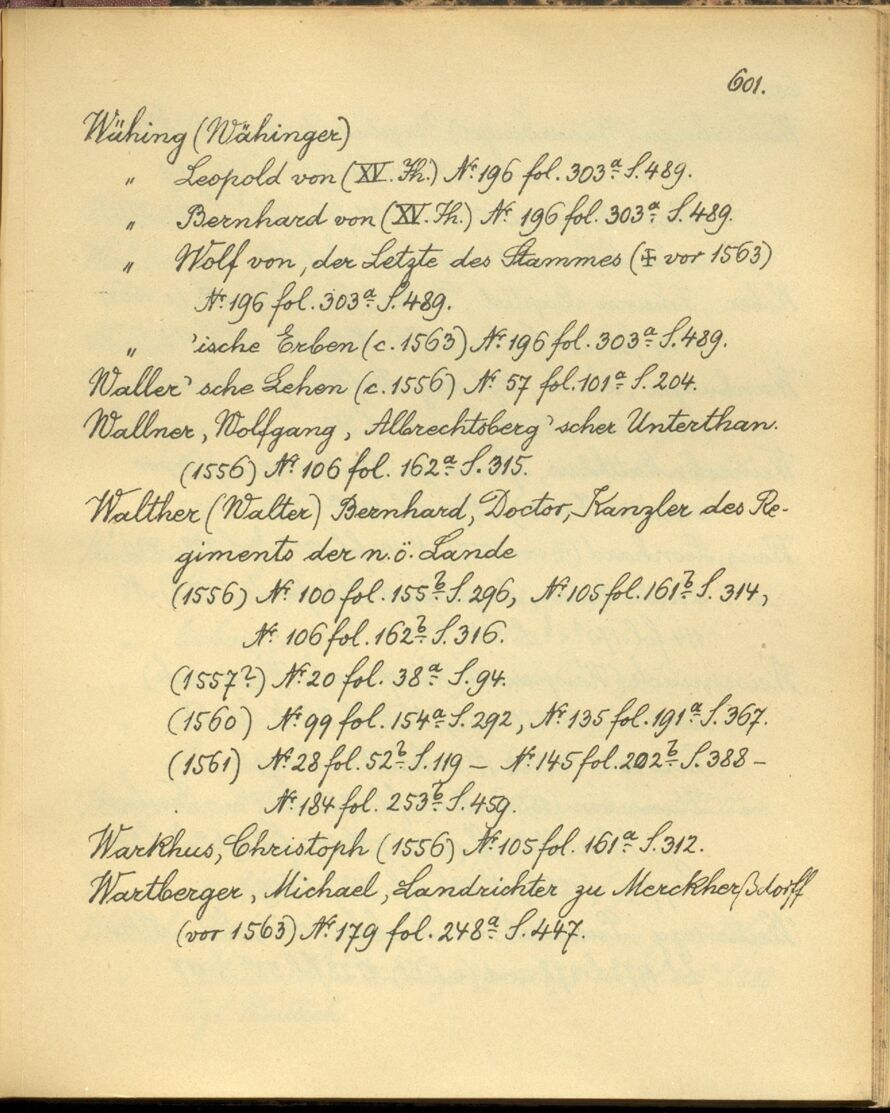 601.
Wähing (Wähinger)
„ Leopold von (XV. Jh.) Nr. 196 fol. 303a S. 489.
„ Bernhard von (XV. Jh.) Nr. 196 fol. 303a S. 489.
„ Wolf von, der Letzte des Stammes (✠ vor 1563)
Nr. 196 fol. 303a S. 489.
„ 'ische Erben (c. 1563) Nr. 196 fol. 303a S. 489.
Waller'sche Lehen (c. 1556) Nr. 57 fol. 101a S. 204.
Wallner, Wolfgang, Albrechtsberg'scher Unterthan.
(1556) Nr. 106 fol. 162a S. 315.
Walther (Walter) Bernhard, Doctor, Kanzler des Re-
giments der n. ö. Lande
(1556) Nr. 100 fol. 155b S. 296, Nr. 105 fol. 161b S. 314,
Nr. 106 fol. 162b S. 316.
(1557?) Nr. 20 fol. 38a S. 94.
(1560) Nr. 99 fol. 154a S. 292, Nr. 135 fol. 191a S. 367.
(1561) Nr. 28 fol. 52b S. 119 – Nr. 145 fol. 202b S. 388 –
Nr. 184 fol. 253b S. 459.
Warkhus, Christoph (1556) Nr. 105 fol. 161a S. 312.
Wartberger, Michael, Landrichter zu Merckherßdorff
(vor 1563) Nr. 179 fol. 248a S. 447.